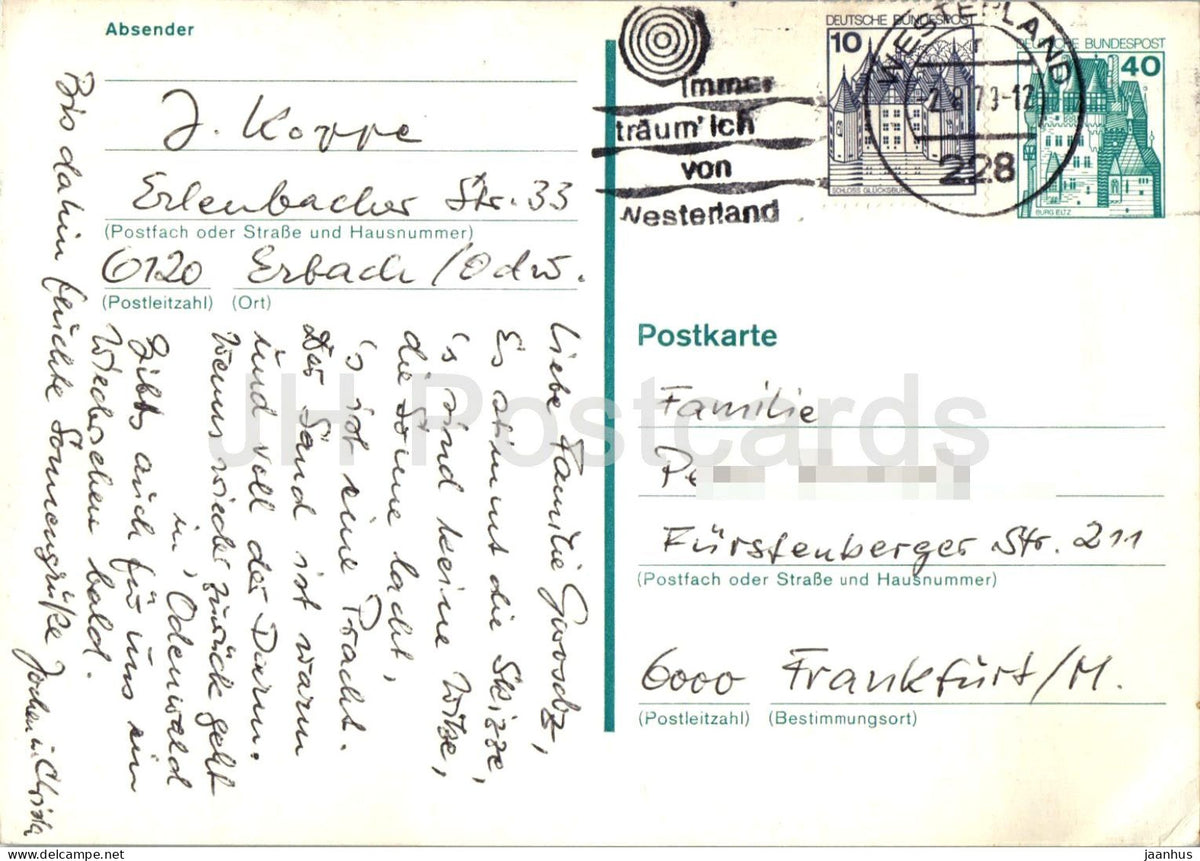 Absender
J. Koppe
Erlenbacher Str. 33
(Postfach oder Straße und Hausnummer)
6120 Erbach/Odw.
(Postleitzahl) (Ort)
Liebe Familie
Es stimmt die Skizze,
's sind keine Witze,
die Sonne lacht,
's ist eine Pracht.
Der Sand ist warm
und voll der Darm.
Wenns wieder zurück geht
in, Odenwald
Gibts auch für uns ein
Wiedersehen bald.
Bis dahin feuchte Sonnengrüße
Jochen u. Christa
immer
träum' ich
von
Westerland
DEUTSCHE BUNDESPOST
10
SCHLOSS GLÜCKSBURG
WESTERLAND
-2.8.79-12
228
DEUTSCHE BUNDESPOST
40
BURG ELTZ
Postkarte
Familie
Pe
Fürstenberger Str. 211
(Postfach oder Straße und Hausnummer)
6000 Frankfurt/M.
(Postleitzahl) (Bestimmungsort)
JH Postcards
delcampe.net
jaanhus